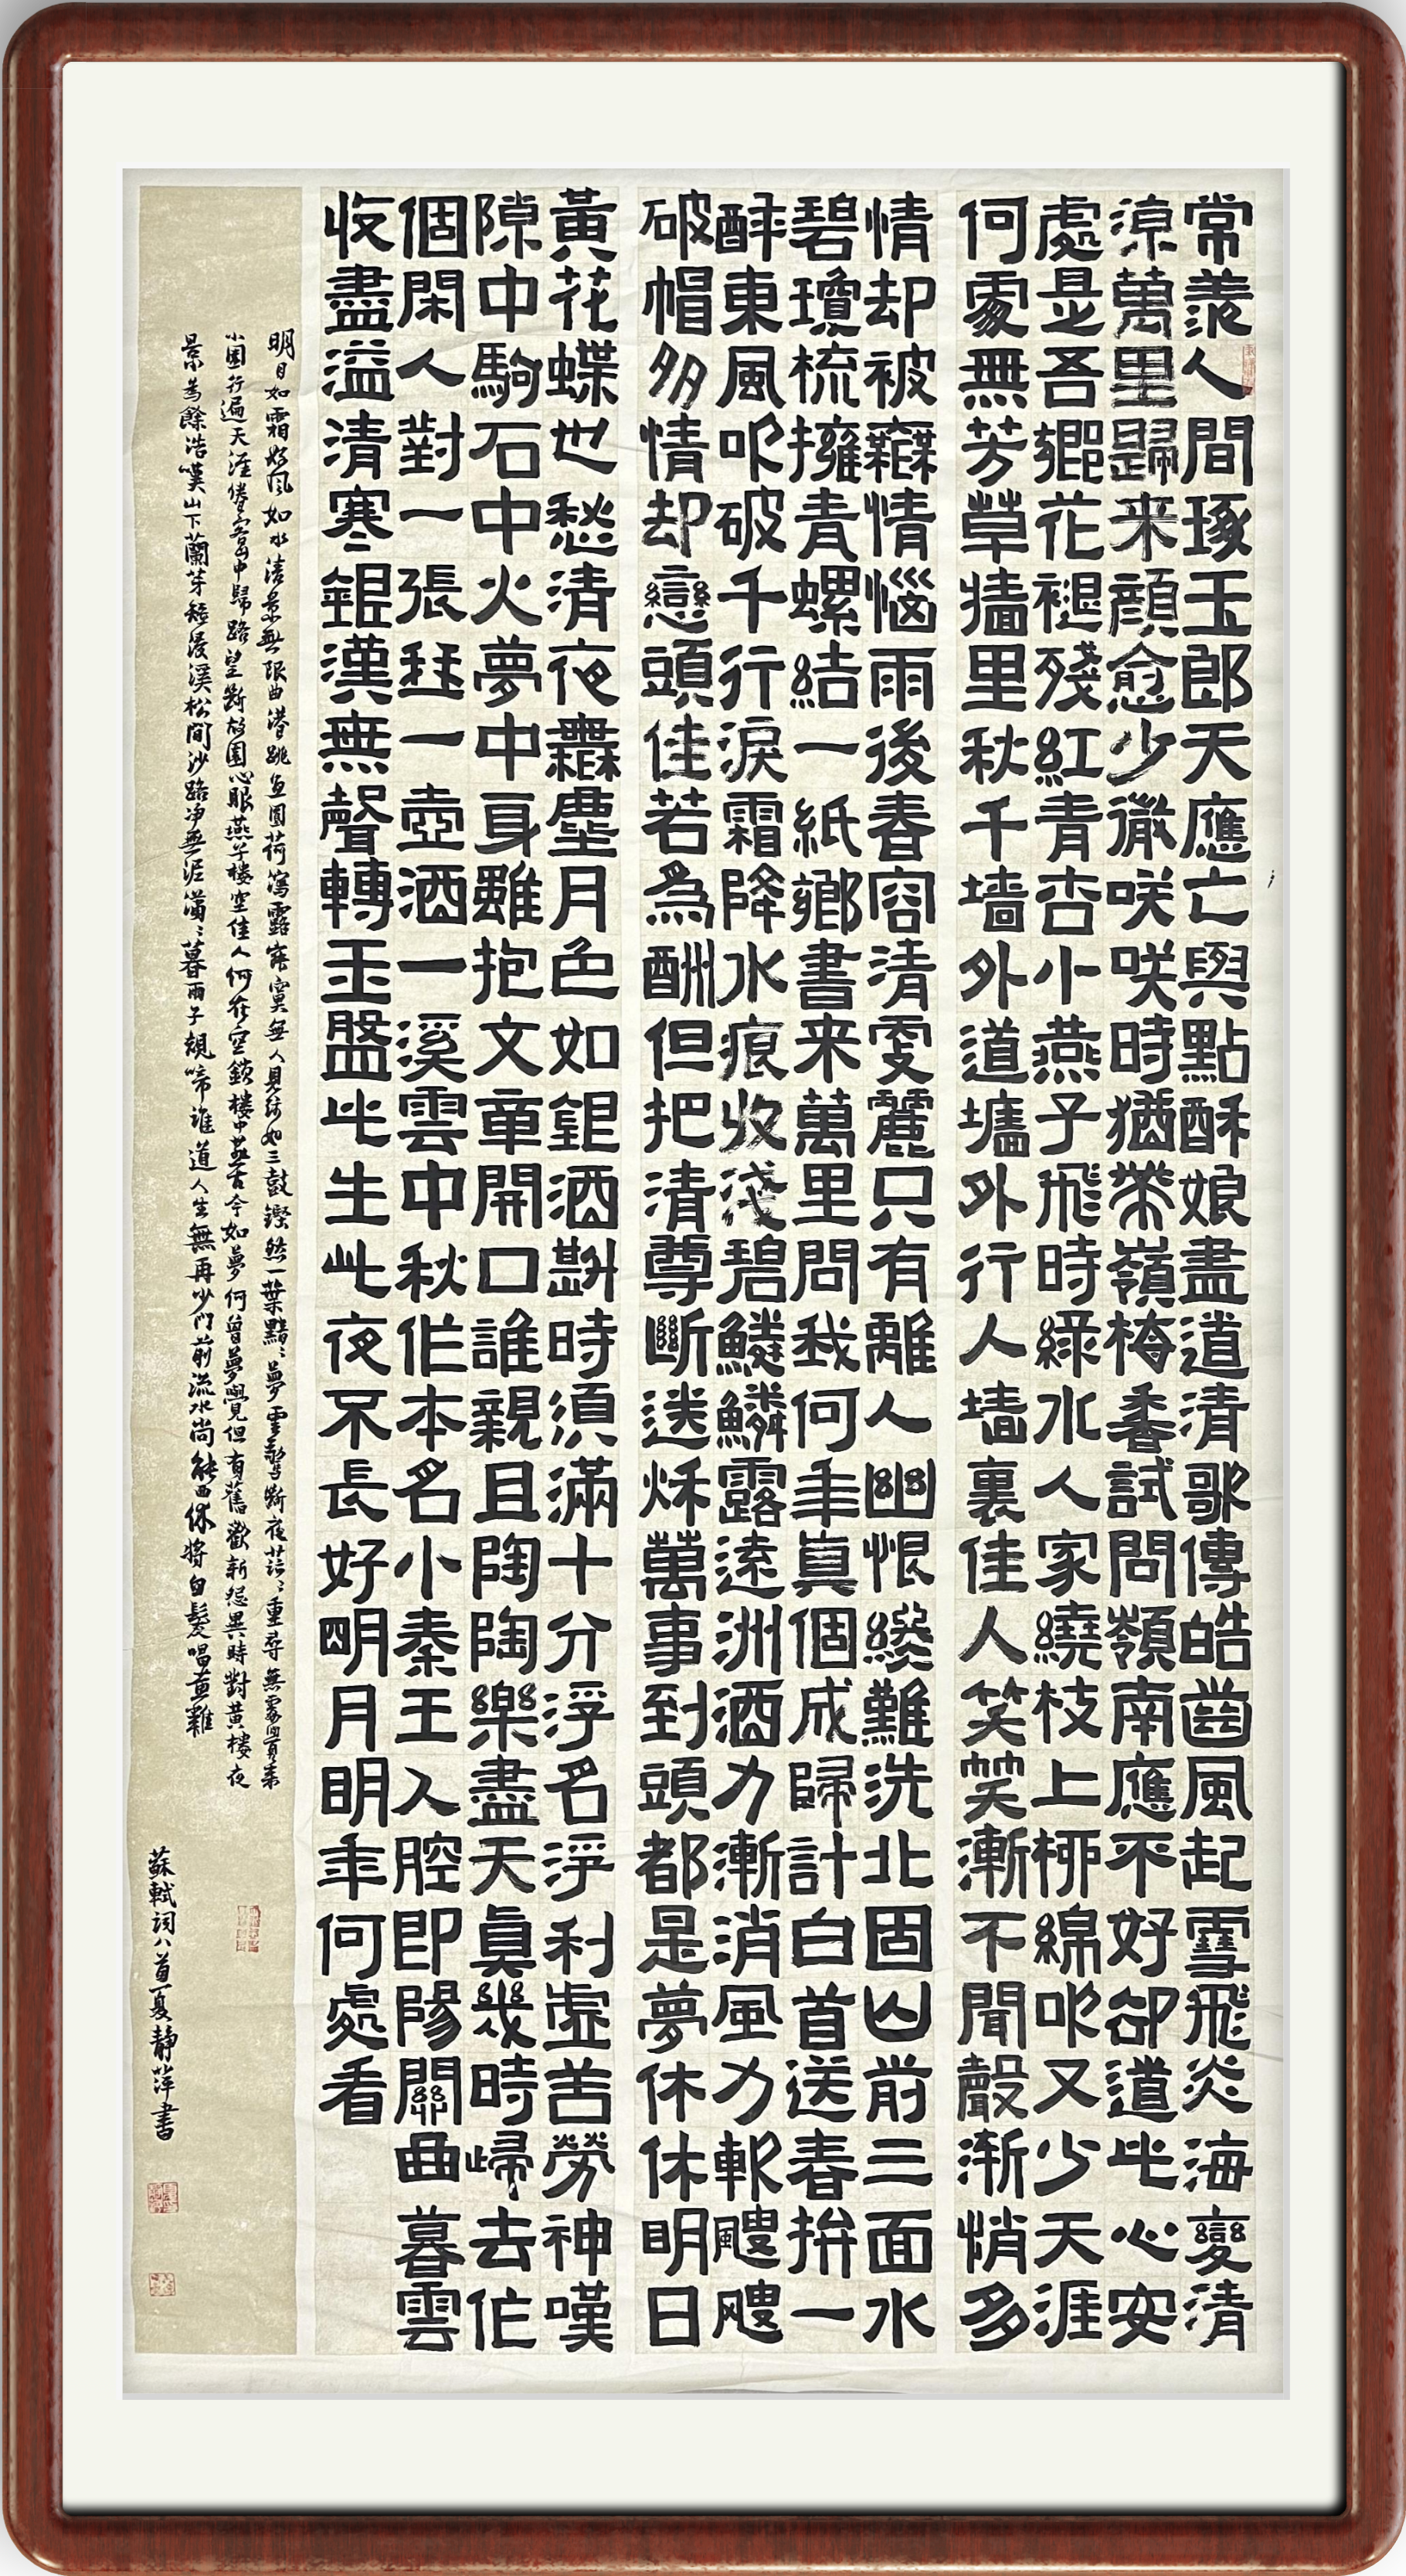 常羨人間琢玉郎天應亡與點酥娘盡道清歌傳皓齒風起雪飛炎海變清
涼萬里歸来顏愈少微咲咲時猶帶嶺梅香試問嶺南應不好卻道此心安
處是吾鄉花褪殘紅青杏小燕子飛時綠水人家繞枝上柳綿吹又少天涯
何處無芳草牆里秋千墙外道墻外行人墙裏佳人笑笑漸不聞聲渐悄多
情却被無情惱雨後春容清更麗只有離人幽恨終難洗北固山前三面水
碧瓊梳擁青螺結一紙鄉書来萬里問我何年真個成歸計白首送春拚一
醉東風吹破千行淚霜降水痕收淺碧鱗鱗露遠洲酒力漸消風力軟颼颼
破帽多情却戀頭佳若為酬但把清尊斷送秋萬事到頭都是夢休休明日
黃花蝶也愁清夜無塵月色如銀酒斟時須滿十分浮名浮利虛苦勞神嘆
隙中駒石中火夢中身雖抱文章開口誰親且陶陶樂盡天真幾時歸去作
個閑人對一張琴一壺酒一溪雲中秋作本名小秦王入腔即陽關曲暮雲
收盡溢清寒銀漢無聲轉玉盤此生此夜不長好明月明年何處看
明月如霜好風如水清景無限曲港跳魚圓荷瀉露寂寞無人見紞如三鼓鏗然一葉黯〻夢雲驚斷夜茫〻重尋無處覺來
小園行遍天涯倦客山中歸路望斷故園心眼燕子樓空佳人何在空鎖樓中燕古今如夢何曾夢覺但有舊歡新怨異時對黃樓夜
景為餘浩嘆山下蘭芽短浸溪松間沙路净無泥瀟〻暮雨子規啼誰道人生無再少門前流水尚能西休將白髮唱黃雞
蘇軾詞八首夏靜萍書